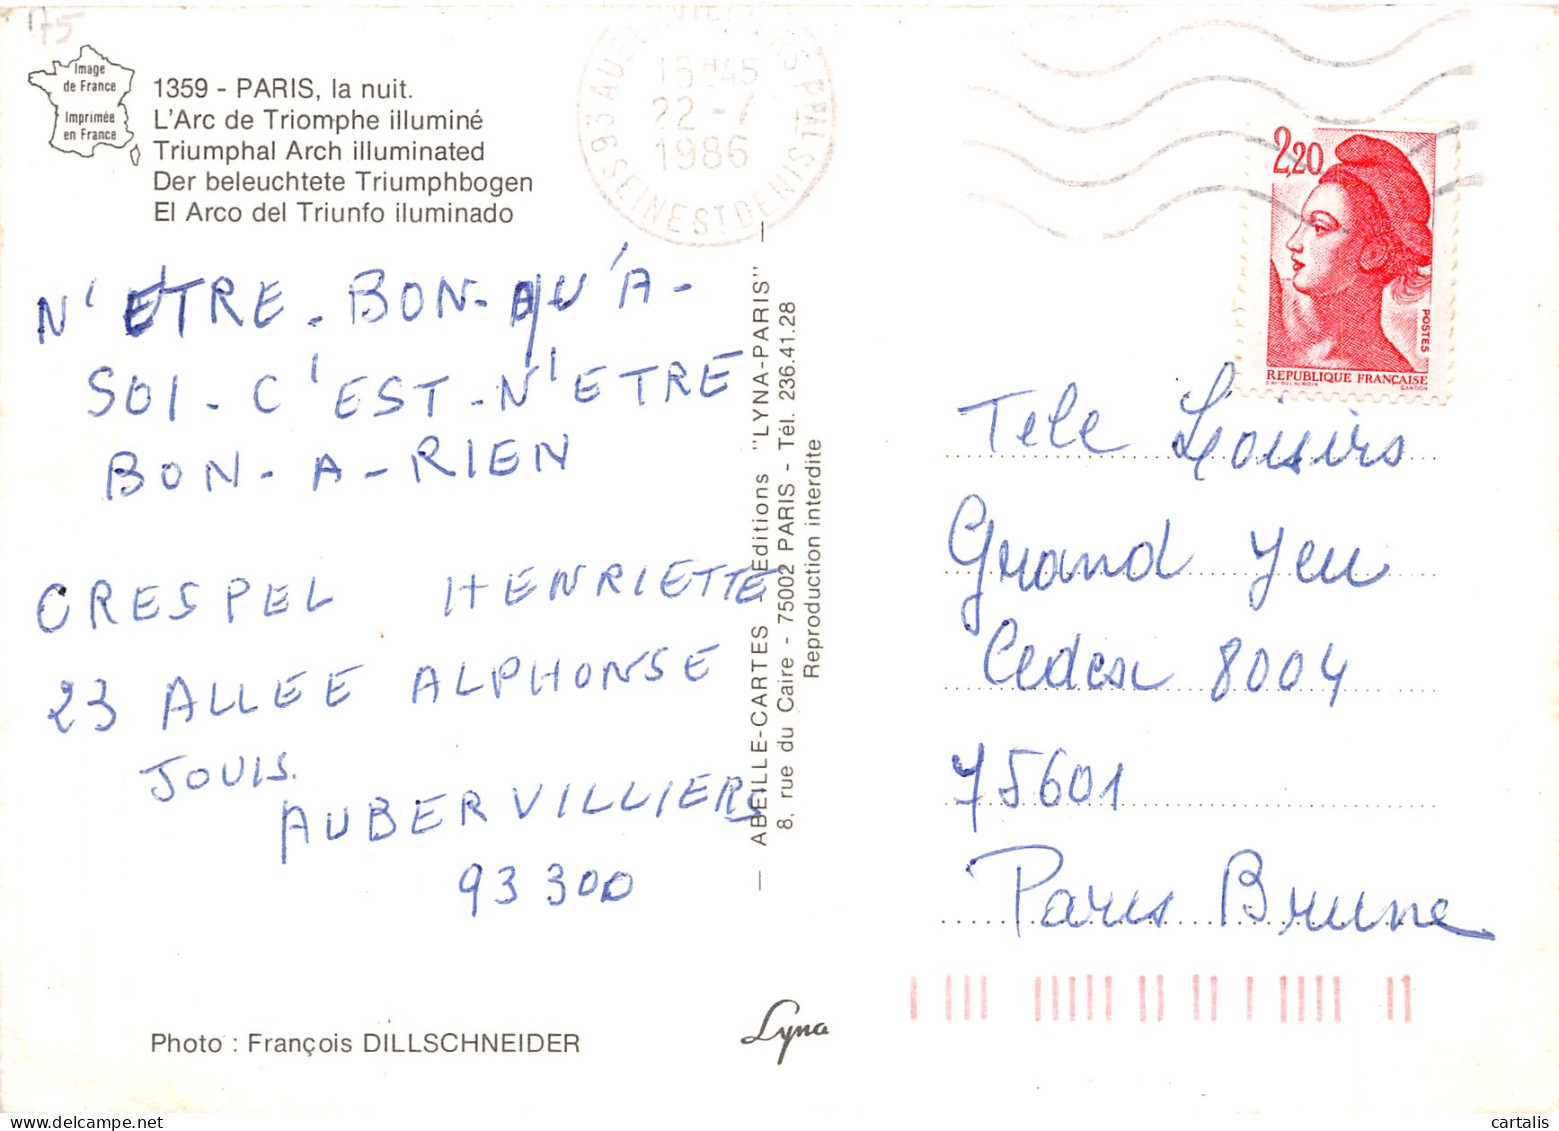 175
Image
de France
Imprimée
en France
1359 - PARIS, la nuit.
L'Arc de Triomphe illuminé
Triumphal Arch illuminated
Der beleuchtete Triumphbogen
El Arco del Triunfo iluminado
15H45
22-7
1986
93 SEINE ST DENIS
2,20
POSTES
REPUBLIQUE FRANÇAISE
N'ETRE-BON-QU'A-
SOI-C'EST-N'ETRE
BON-A-RIEN
CRESPEL HENRIETTE
23 ALLEE ALPHONSE
JOUIS.
AUBERVILLIERS
93300
ABEILLE-CARTES - Editions "LYNA-PARIS"
8, rue du Caire - 75002 PARIS - Tél. 236.41.28
Reproduction interdite
Tele Loisirs
Grand Jeu
Cedex 8004
75601
Paris Brune
Photo : François DILLSCHNEIDER
Lyna
cartalis